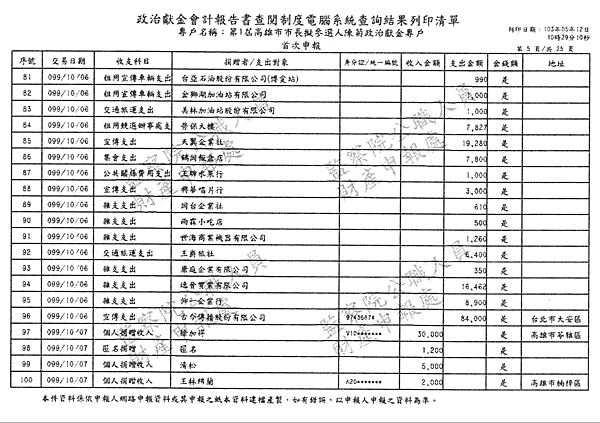 政治獻金會計報告書查閱制度電腦系統查詢結果列印清單
專戶名稱：第1屆高雄市市長擬參選人陳菊政治獻金專戶
首次申報
列印日期：103年05年12日
10時29分10秒
第 5 頁/共 25 頁
序號 交易日期 收支科目 捐贈者/支出對象 身分證/統一編號 收入金額 支出金額 金錢類 地址
81 099/10/06 租用宣傳車輛支出 台亞石油股份有限公司(博愛站) 990 是
82 099/10/06 租用宣傳車輛支出 金獅湖加油站有限公司 1,000 是
83 099/10/06 交通旅運支出 美林加油站股份有限公司 1,000 是
84 099/10/06 租用競選辦事處支 勞保大樓 7,827 是
85 099/10/06 宣傳支出 天翼企業社 19,280 是
86 099/10/06 集會支出 飯店 7,800 是
87 099/10/06 公共關係費用支出 王牌水果行 1,000 是
88 099/10/06 宣傳支出 興華唱片行 3,000 是
89 099/10/06 雜支支出 岡台企業社 610 是
90 099/10/06 雜支支出 雨霖小吃店 500 是
91 099/10/06 雜支支出 世海商業機器有限公司 1,260 是
92 099/10/06 交通旅運支出 王爵旅社 6,400 是
93 099/10/06 雜支支出 康庭企業有限公司 350 是
94 099/10/06 雜支支出 逸音實業有限公司 16,462 是
95 099/10/06 雜支支出 仲一企業行 8,900 是
96 099/10/06 宣傳支出 古今傳播股份有限公司 97436874 84,000 是 台北市大安區
97 099/10/07 個人捐贈收入 徐加祥 V10******* 30,000 是 高雄市苓雅區
98 099/10/07 匿名捐贈 匿名 1,200 是
99 099/10/07 個人捐贈收入 清松 5,000 是
100 099/10/07 個人捐贈收入 王林綉蘭 A20******* 2,000 是 高雄市楠梓區
本件資料係依申報人網路申報資料或其申報之紙本資料建檔產製，如有錯誤，以申報人申報之資料為準。
監察院公職人員
財產申報處
監察院公職人員
財產申報處
監察院公職人員
財產申報處
監察院公職人員
財產申報處